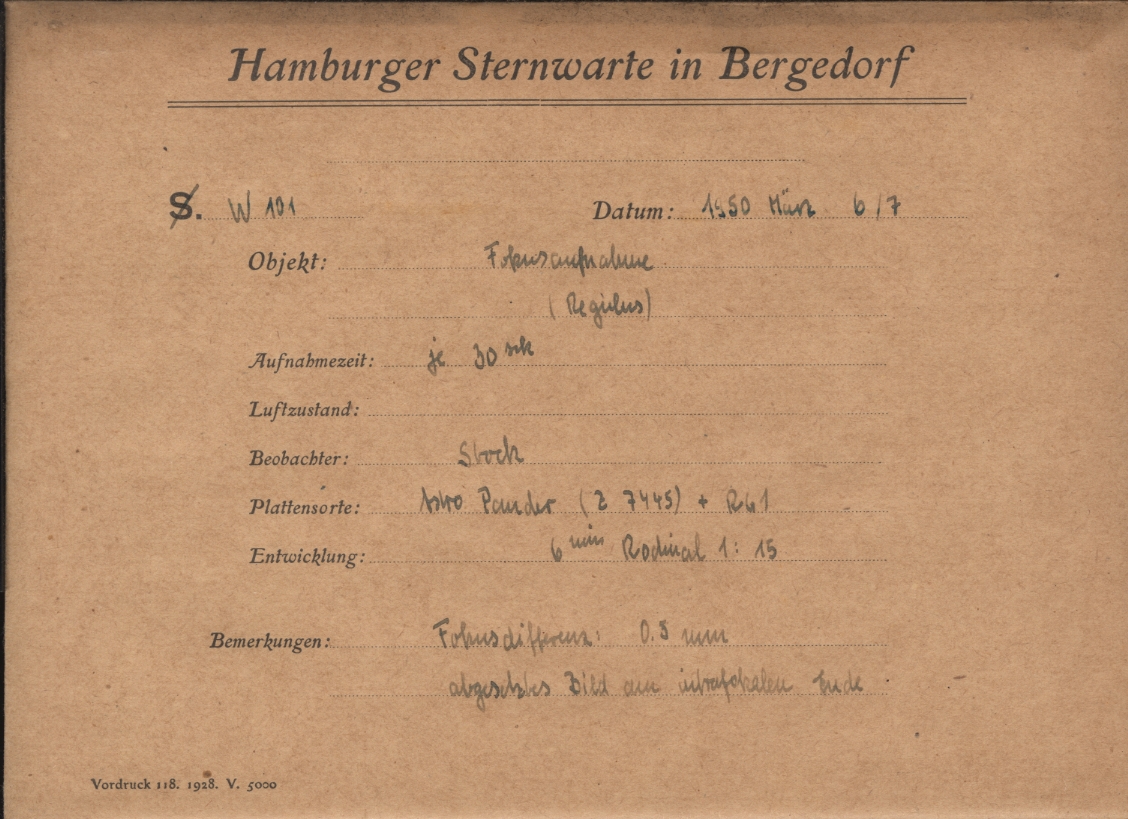 Hamburger Sternwarte in Bergedorf
S. W 101 Datum: 1950 März 6/7
Objekt: Fokusaufnahme
(Regulus)
Aufnahmezeit: je 30 sek
Luftzustand:
Beobachter: Stock
Plattensorte: Astro Pander (Z 7445) + RG1
Entwicklung: 6 min Rodinal 1:15
Bemerkungen: Fokusdifferenz: 0.5 mm
abgesetztes Bild am intrafokalen Ende
Vordruck 118. 1928. V. 5000